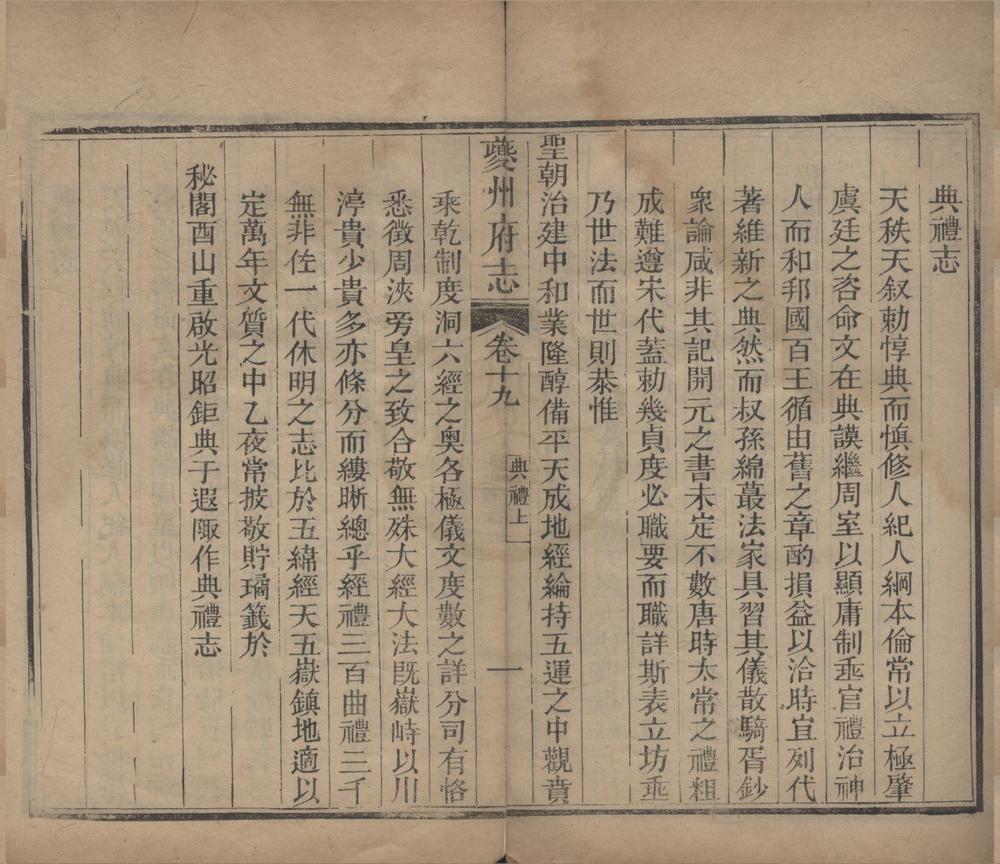 典禮志
天秩天叙勅惇典而慎修人紀人綱本倫常以立極肇
虞廷之咨命文在典謨繼周室以顯庸制垂官禮治神
人而和邦國百王循由舊之章酌損益以洽時宜列代
著維新之典然而叔孫綿蕞法家具習其儀散騎胥鈔
衆論咸非其記開元之書未定不數唐時太常之禮粗
成難遵宋代蓋勅幾貞度必職要而職詳斯表立坊垂
乃世法而世則恭惟
聖朝治建中和業隆醇備平天成地經綸持五運之中觀賁
夔州府志 卷十九 典禮上 一
乘乾制度洞六經之奥各極儀文度數之詳分司有恪
悉徵周浹旁皇之致合敬無殊大經大法既嶽峙以川
渟貴少貴多亦條分而縷晰總乎經禮三百曲禮三千
無非佐一代休明之志比於五緯經天五嶽鎮地適以
定萬年文質之中乙夜常披敬貯琅籤於
秘閣酉山重啟光昭鉅典于遐陬作典禮志